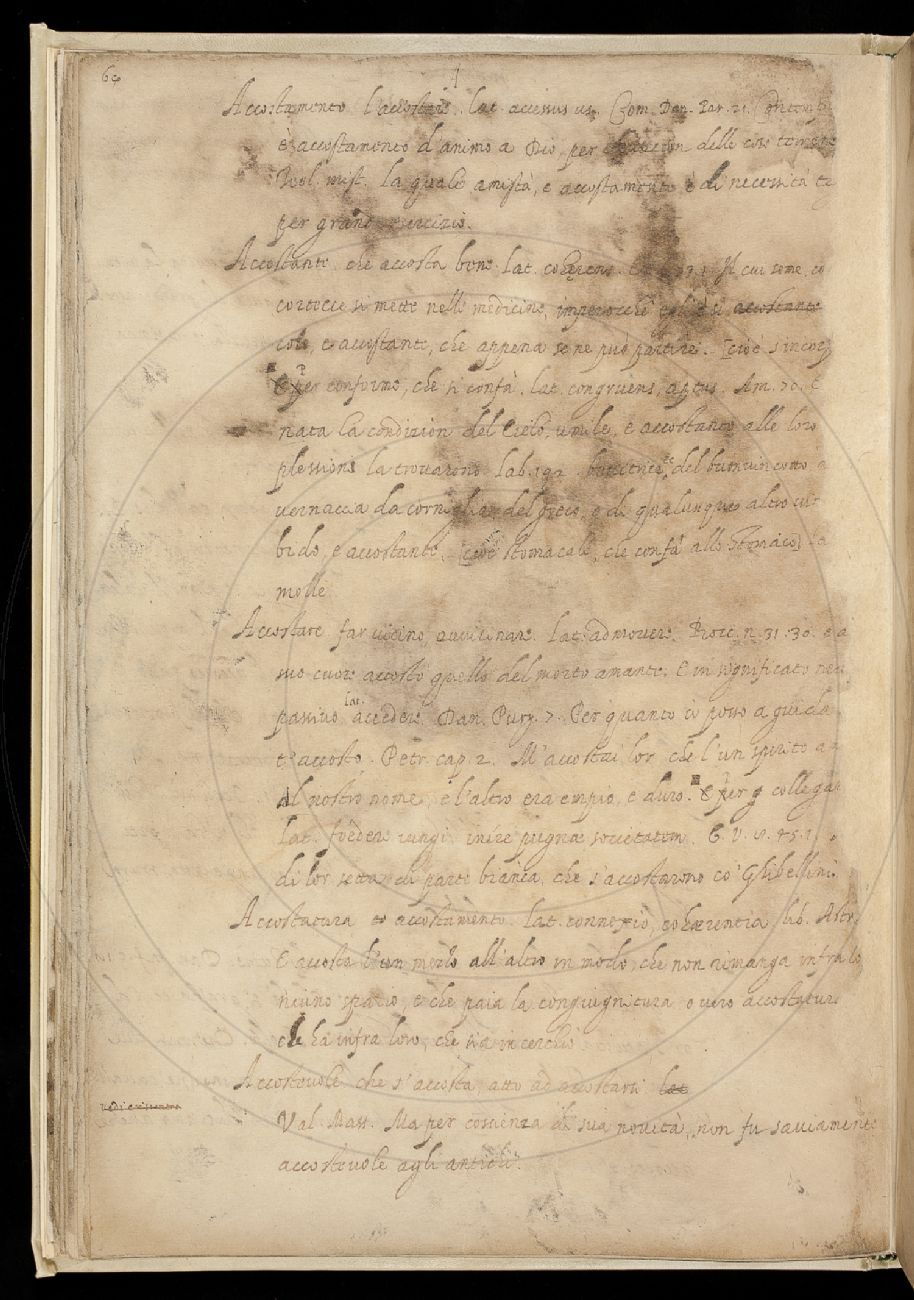 A
Accostamento l'accostare. lat. accessus us. Com. Dan. Par. 21.
è accostamento d'animo a Dio, per delle cose
mist. la quale amistà, e accostamento è di necessità
per grande esercizio.
Accostante che accosta bene. lat. cohærens. Il cui seme, co
cortecce si mette nelle medicine, imperocchè egli è sì accostante
cole, e accostante, che appena se ne può partire. [cioè
E per conforme, che si confà. lat. congruens, aptus. Am. 70. E
nata la condizion del Cielo, umile, e accostante alle loro
plessioni la trovarono. Lab. 192. del buon vin cotto
vernaccia da corniglia, del greco, e di qualunque altro vin
bido, e accostante. [cioè stomacale, che confà allo stomaco]
molle
Accostare far vicino, avvicinare. lat. admovere. Bocc. n. 31. 30. e a
suo cuore accostò quello del morto amante. E in significato neu
passivo lat. accedere Dan. Purg. 7. Per quanto io posso a guida
t'accosto. Petr. cap. 2. M'accostai lor, che l'un spirito a
Al nostro nome, e l'altro era empio, e duro. E per collegar
lat. fœdere iungi inire pugnæ societatem. G. V. 8. 45. 1.
di lor setta di parte bianca, che s'accostarono co' Ghibellini.
Accostatura accostamento. lat. connexio, cohærentia lib. Astr.
E accosta l'un merlo all'altro in modo, che non rimanga infra lo
niuno spazio, e che paia la congiugnitura overo accostatura
che ha infra loro, che sia in cerchio
Accostevole che s'accosta, atto ad accostarsi lat.
Val. Mass. Ma per coscienza di sua novità, non fu saviamente
accostevole agli antichi.